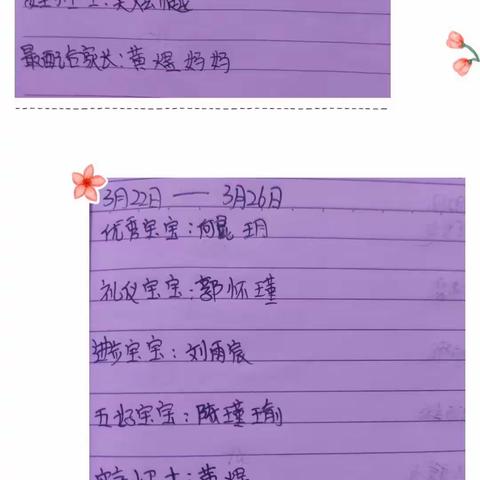 最配合家长：黄煜妈妈
3月22日 —— 3月26日
优秀宝宝：何昆玥
礼仪宝宝：郭怀瑾
进步宝宝：刘雨宸
五好宝宝：陈瑾瑜
黄煜